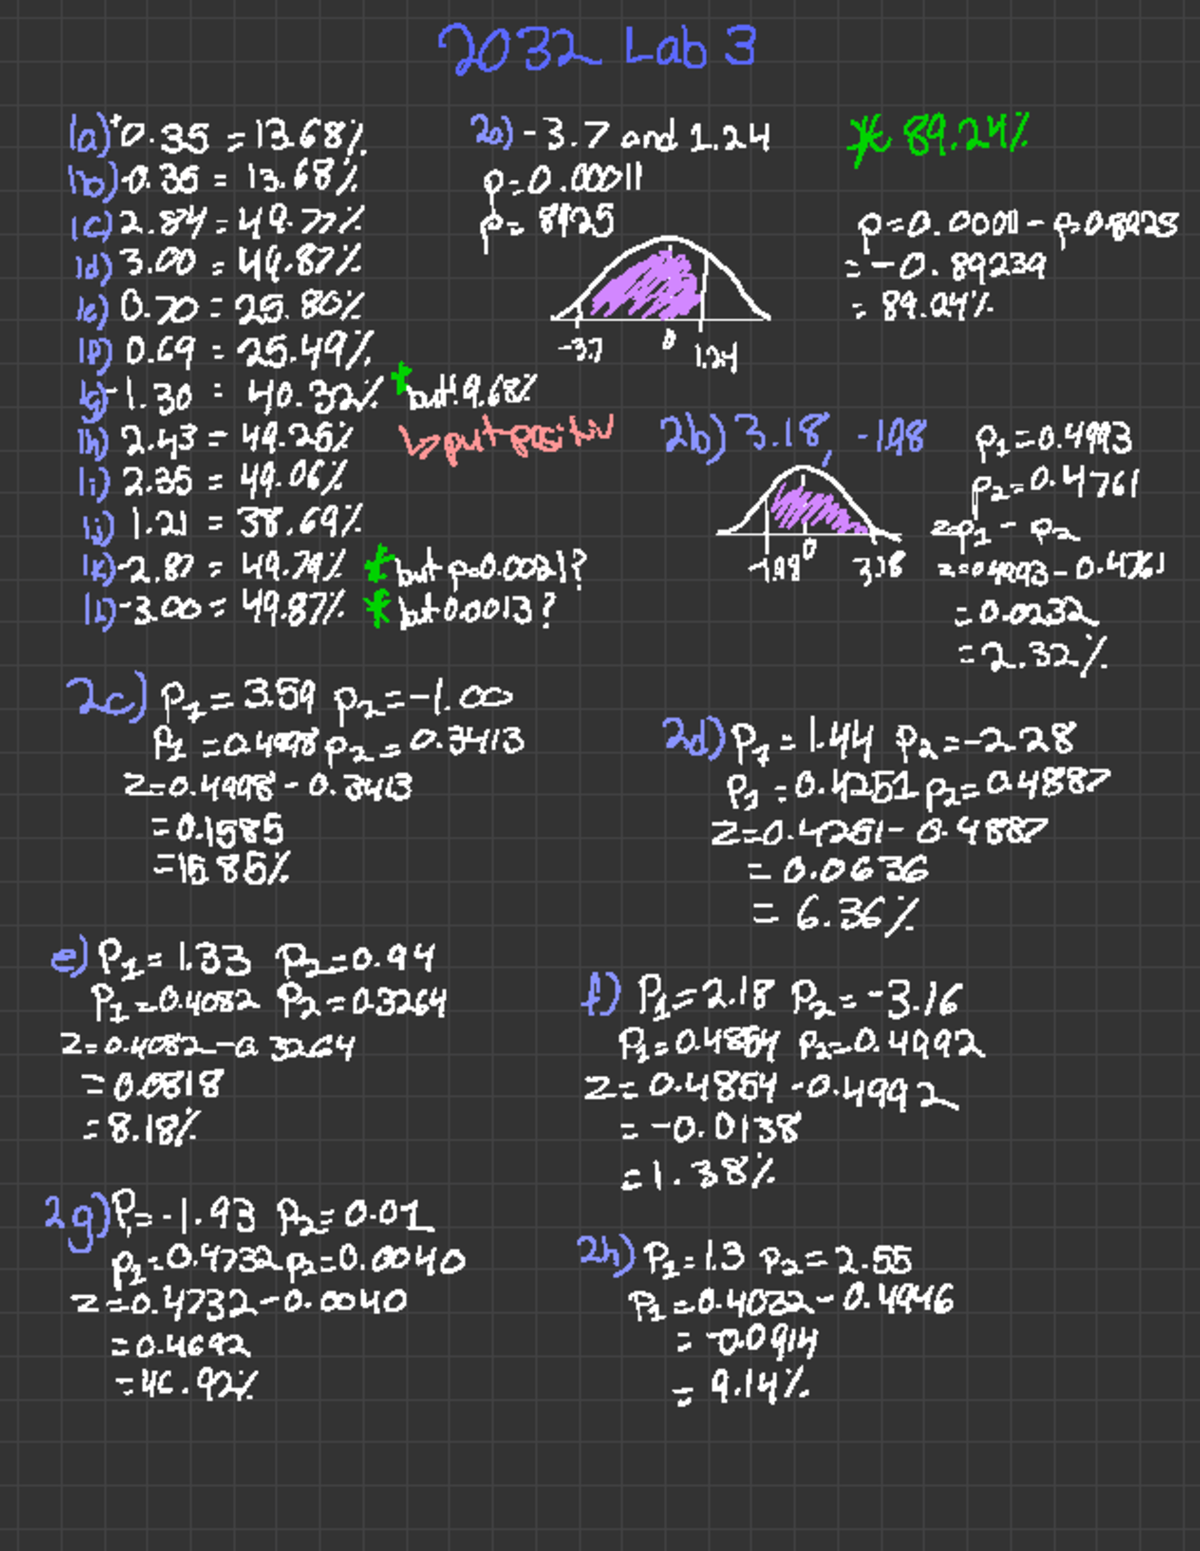 2032 Lab 3
1a) +0.35 = 13.68%
1b) -0.35 = 13.68%
1c) 2.84 = 49.77%
1d) 3.00 = 49.87%
1e) 0.70 = 25.80%
1f) 0.69 = 25.49%
1g) -1.30 = 40.32% * but 9.68%
↳ put positiv
1h) 2.43 = 49.25%
1i) 2.35 = 49.06%
1j) 1.21 = 38.69%
1k) -2.87 = 49.79% * but p=0.0021?
1l) -3.00 = 49.87% * but 0.0013?
2a) -3.7 and 1.24
p=0.00011
p= 8925
-3.7 0 1.24
* 89.24%
p=0.00011 - p=0.8925
= -0.89239
= 89.24%
2b) 3.18, -1.98
-1.98 0 3.18
p1=0.4993
p2=0.4761
z=p1 - p2
z=0.4993-0.4761
=0.0232
=2.32%
2c) p1=3.59 p2=-1.00
p1=0.4998 p2=0.3413
z=0.4998-0.3413
=0.1585
=15.85%
2d) p1=1.44 p2=-2.28
p1=0.4251 p2=0.4887
z=0.4251-0.4887
= 0.0636
= 6.36%
e) p1=1.33 p2=0.94
p1=0.4082 p2=0.3264
z=0.4082-0.3264
=0.0818
=8.18%
f) p1=2.18 p2=-3.16
p1=0.4854 p2=0.4992
z=0.4854-0.4992
=-0.0138
=1.38%
2g) p1=-1.93 p2=0.01
p1=0.4732 p2=0.0040
z=0.4732-0.0040
=0.4692
=46.92%
2h) p1=1.3 p2=2.55
p1=0.4032-0.4946
=-0.0914
= 9.14%